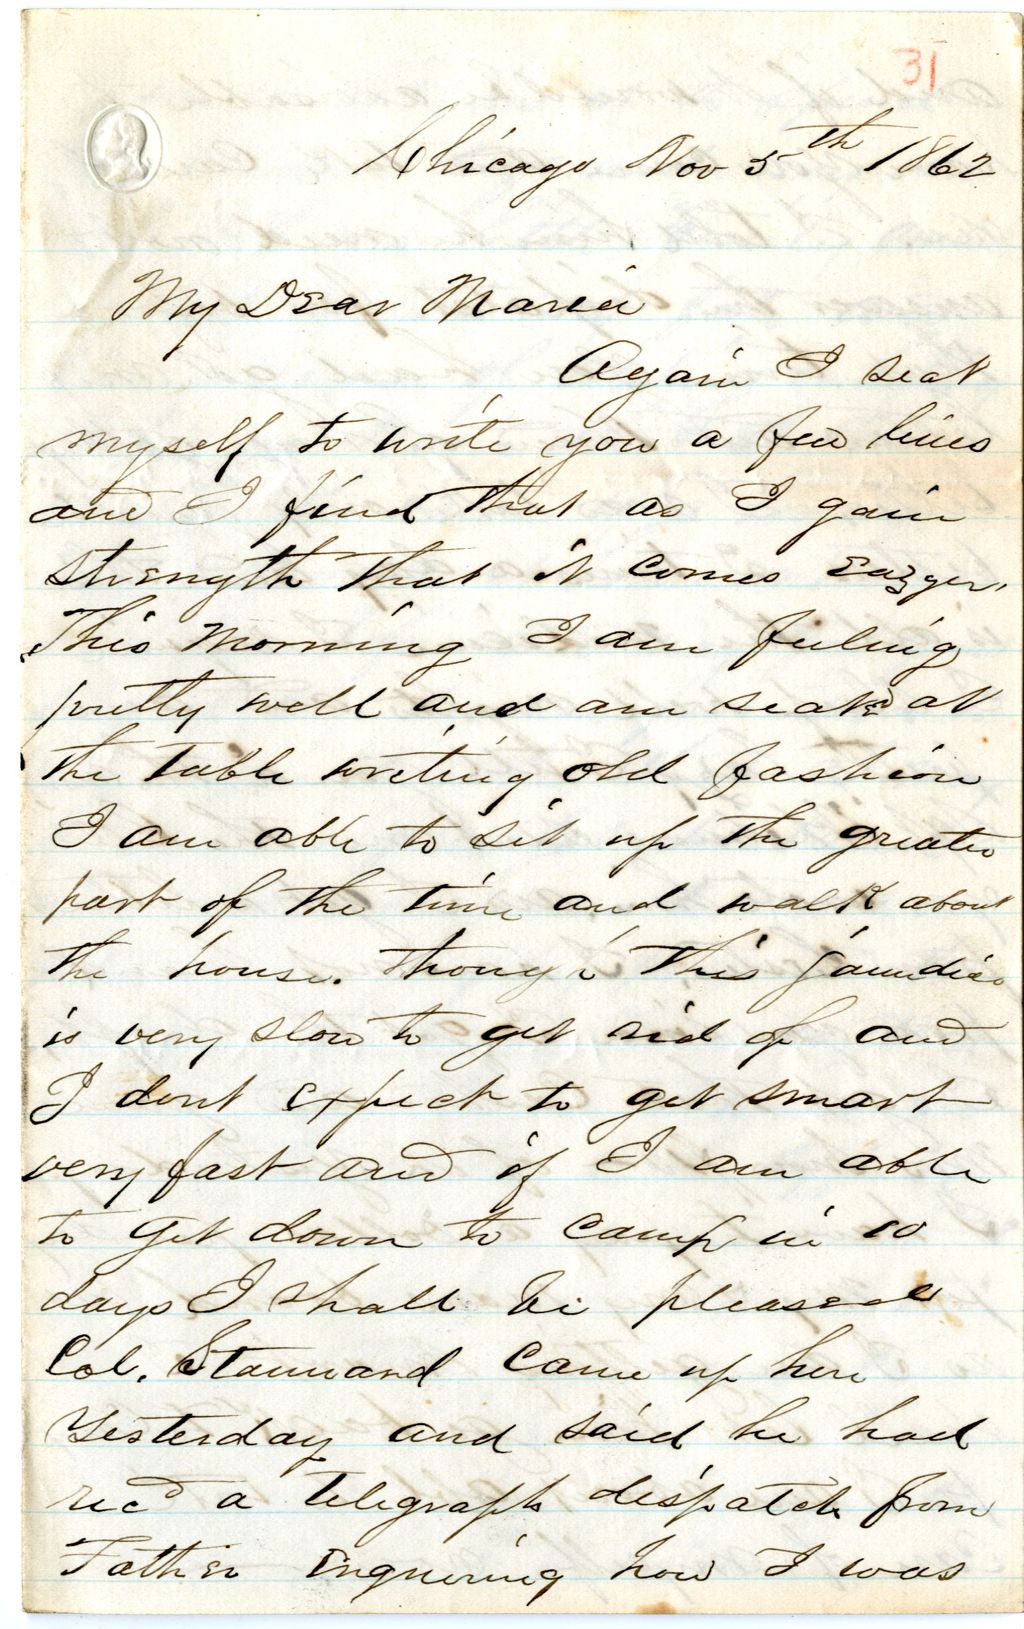 31
Chicago Nov 5th 1862
My Dear Maria
Again I seat
myself to write you a few lines
and I find that as I gain
strength that it comes eazyer.
This morning I am feeling
pretty well and am seated at
the table writing old fashion
I am able to sit up the greater
part of the time and walk about
the house. though this jaundice
is very slow to get rid of and
I dont expect to get smart
very fast and if I am able
to get down to camp in 10
days I shall be pleased
Col. Stannard came up here
yesterday and said he had
recd a telegraph dispatch from
Father enquiring how I was